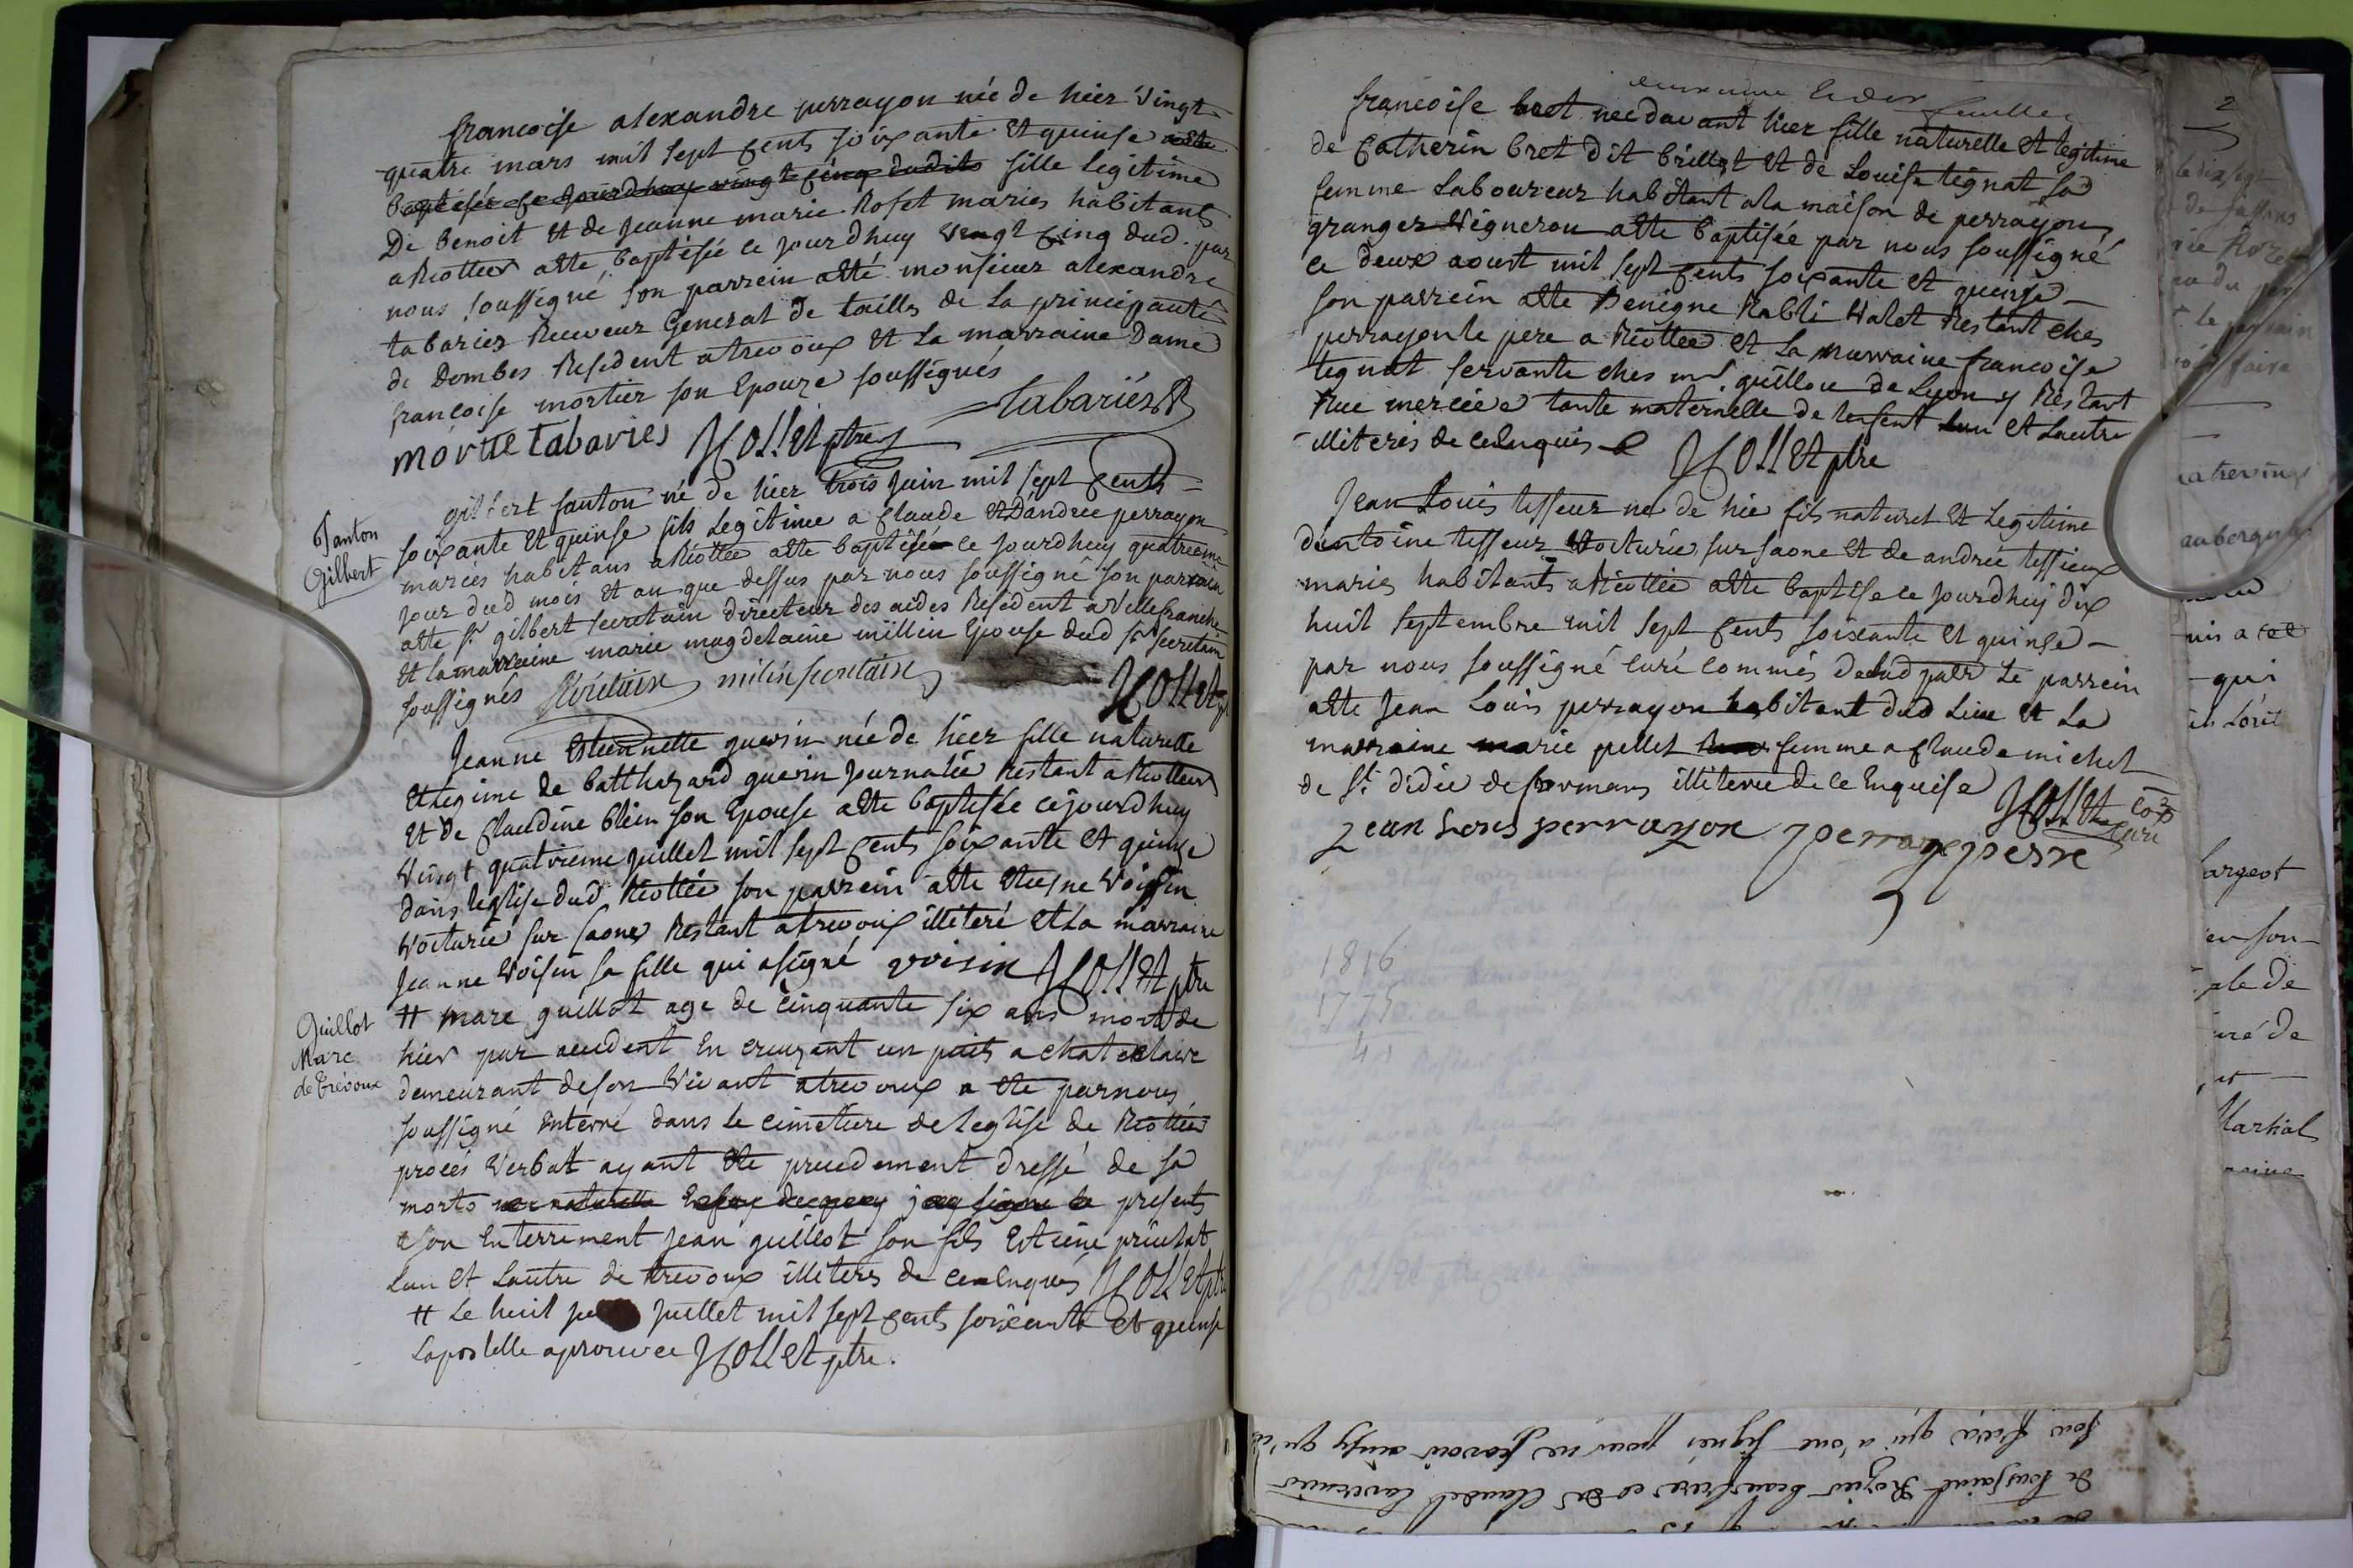 francoise alexandre perrayon née de hier vingt
quatre mars mil sept cents soixante et quinse
baptisée ce jourdhuy vingt cinq dudit fille legitime
De benoit et de jeanne marie Rofet mariés habitants
a Riottier atte baptisée ce jourdhuy vingt cinq dud. par
nous soussigné son parrein atté monsieur alexandre
tabariés Receveur General de tailles de la principauté
de Dombes Resident a trevoux et la marraine Dame
francoise mortier son Epouze soussignés
Tabariés
mortie tabaries Hollet ptre
Fanton
Gilbert
gilbert fanton né de hier trois juin mil sept cents
soixante et quinse fils legitime a claude et dandree perrayon
mariés habitans a Riottée atte baptisé ce jourdhuy quatrieme
jour dud mois et an que dessus par nous soussigné son parrain
atte sr. gilbert secretain directeur des aides Resident a Villefranche
et la marraine marie magdelaine millin Epouse dud sr secretain
soussignés Secretain milin secretain
Hollet
Jeanne Etiennette guerin née de hier fille naturelle
et legime de batthazard guerin journalié Restant a Riottier
et de claudine blein son Epouse atte baptisée cejourdhuy
vingt quatrieme juillet mil sept cents soixante et quinse
dans leglise dud Riottée son parrein atte Etiesne Voisin
voiturié sur saone Restant a trevoux illiteré et la marraine
jeanne Voisin sa fille qui a signé voisin Hollet ptre
Guillot
Marc
de Trévoux
# marc guillot age de cinquante six ans mort de
hier par accident en creuzant un puits a chateclaire
demeurant de son vivant a trevoux a ete par nous
soussigné Enterré dans le cimetiere de leglise de Riottée
procés verbal ayant ete precedement dressé de sa
morts presents
a son Enterrement jean guillot son fils Estiene
lun et lautre de trevoux illiteres de ce Enquis Hollet ptre
# Le huit juillet mil sept cents soixante et quinse
lapostelle aprouvee Hollet ptre.
feuillet
francoise bret nee davant hier fille naturelle et legitime
de catherin bret dit brillot et de Louise tignat sa
femme Laboureur habitant a la maison de perrayon
granger vigneron atte baptisée par nous soussigné
ce deux aoust mil sept cents soixante et quinse
son parrein atte Benigne Rabli Valet Restant ches
perrayon le pere a Riottee et la marraine francoise
tignat servante ches mr. guillou de Lyon y Restant
Rue merciée tante maternelle de lenfent lun et lautre
illiterés de ce Enquis Hollet ptre
Jean Louis tisseur ne de hie fils naturel et legitime
dantoine tisseur voiturié sur saone et de andrée tissieux
mariés habitants a Riottée atte baptise ce jourdhuy dix
huit septembre mil sept cents soixante et quinse
par nous soussigné curé commis le parrein
atte Jean Louis perrayon habitant dud Lieu et La
marraine marie pellet femme a claude michel
de st didié de formans illiteree de ce Enquise
Hollet curé
jean Louis perrayon perrayon perre
1816
1775
41
2
le dix sept
argeot
Martial
qui
son frere qui n'ont signés pour ne scavoir ainsy qu'il
de Toussaint Rozier beaufrere et de Claude